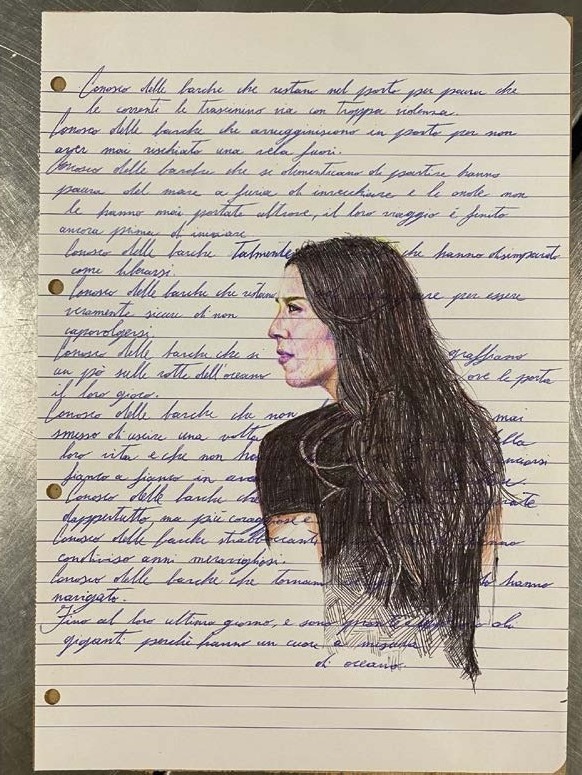 Conosco delle barche che restano nel porto per paura che
le corrente le trascinino via con troppa violenza.
Conosco delle barche che arrugginiscono in porto per non
aver mai rischiato una vela fuori.
Conosco delle barche che si dimenticano di partire hanno
paura del mare a furia di invecchiare e le onde non
le hanno mai portate altrove, il loro viaggio è finito
ancora prima di iniziare
Conosco delle barche talmente che hanno disimparato
come liberarsi.
Conosco delle barche che restano per essere
veramente sicure di non
capovolgersi.
Conosco delle barche che si graffiano
un pò sulle rotte dell'oceano ove le porta
il loro gioco.
Conosco delle barche che non mai
smesso di uscire una volta della
loro vita e che non
fianco a fianco in
Conosco delle barche che
dappertutto, ma più coraggiose e
Conosco delle barche straboccanti
condiviso anni meravigliosi.
Conosco delle barche che tornano hanno
navigato.
Fino al loro ultimo giorno, e sono ali
giganti perchè hanno un cuore a misura
di oceano.